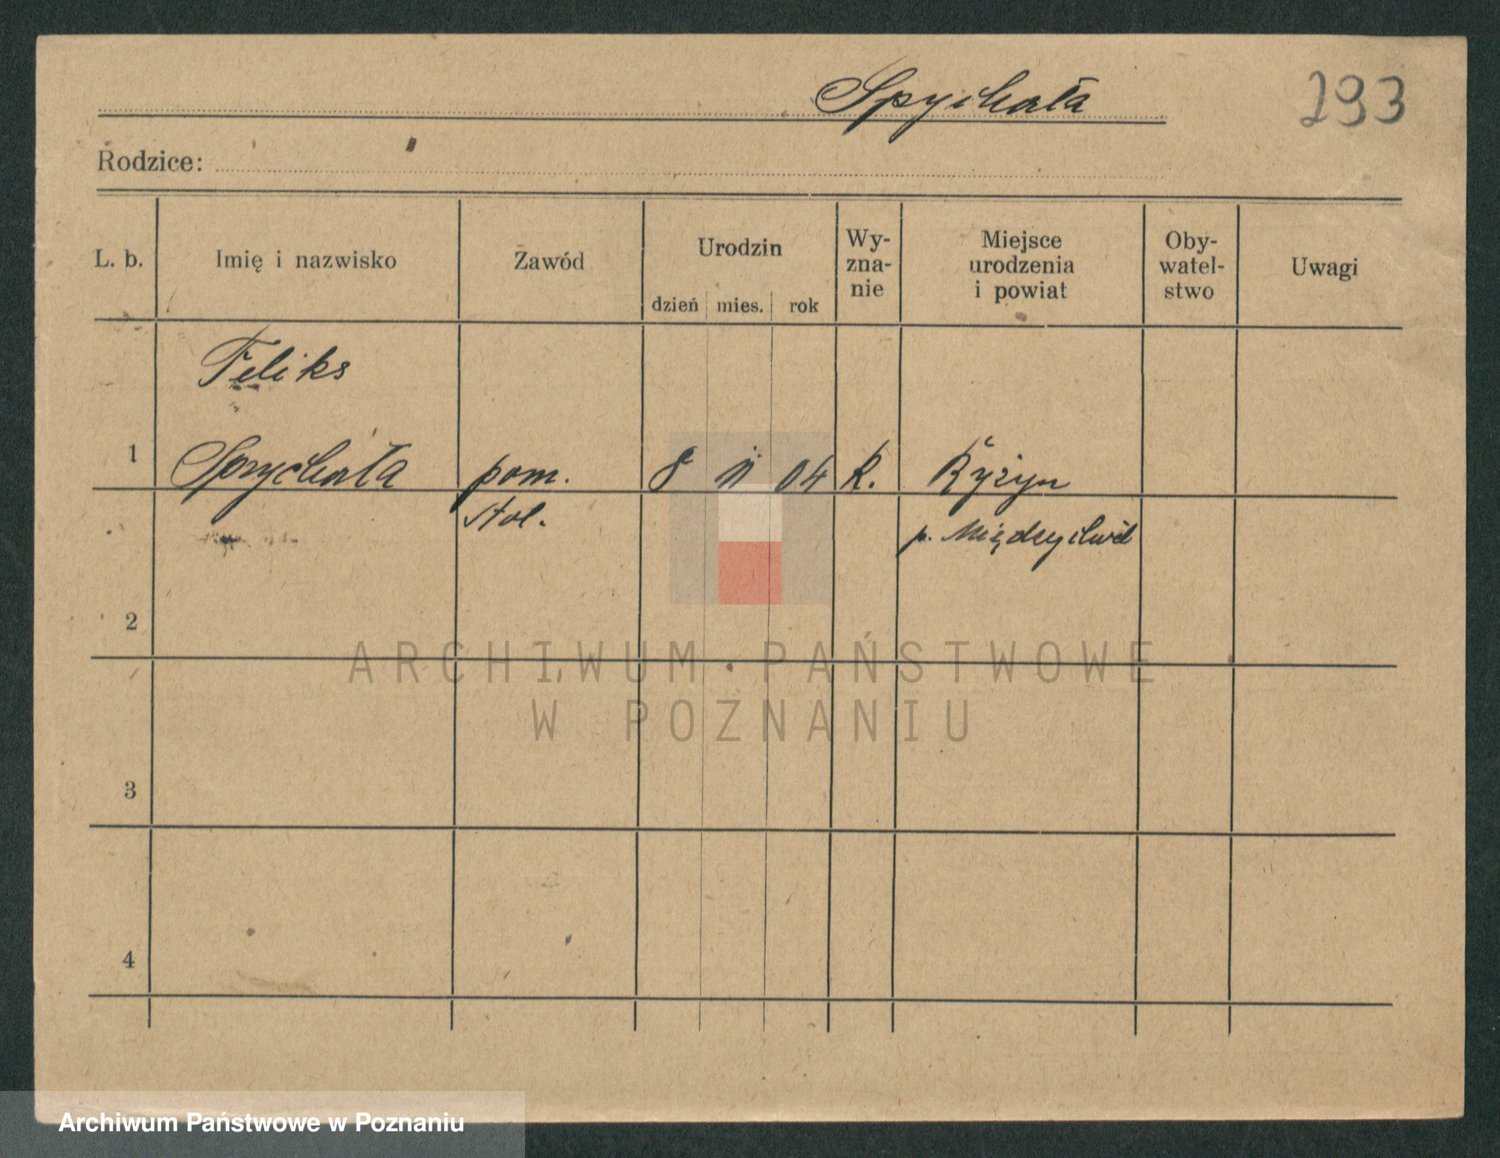 Spychała
293
Rodzice:
L. b. Imię i nazwisko Zawód Urodzin dzień mies. rok Wy-zna-nie Miejsce urodzenia i powiat Oby-watel-stwo Uwagi
Feliks
1 Spychała pom. 8 II 04 R. Ryżyn
Stol. p. Międzychód
2
3
4
ARCHIWUM PAŃSTWOWE
W POZNANIU
Archiwum Państwowe w Poznaniu